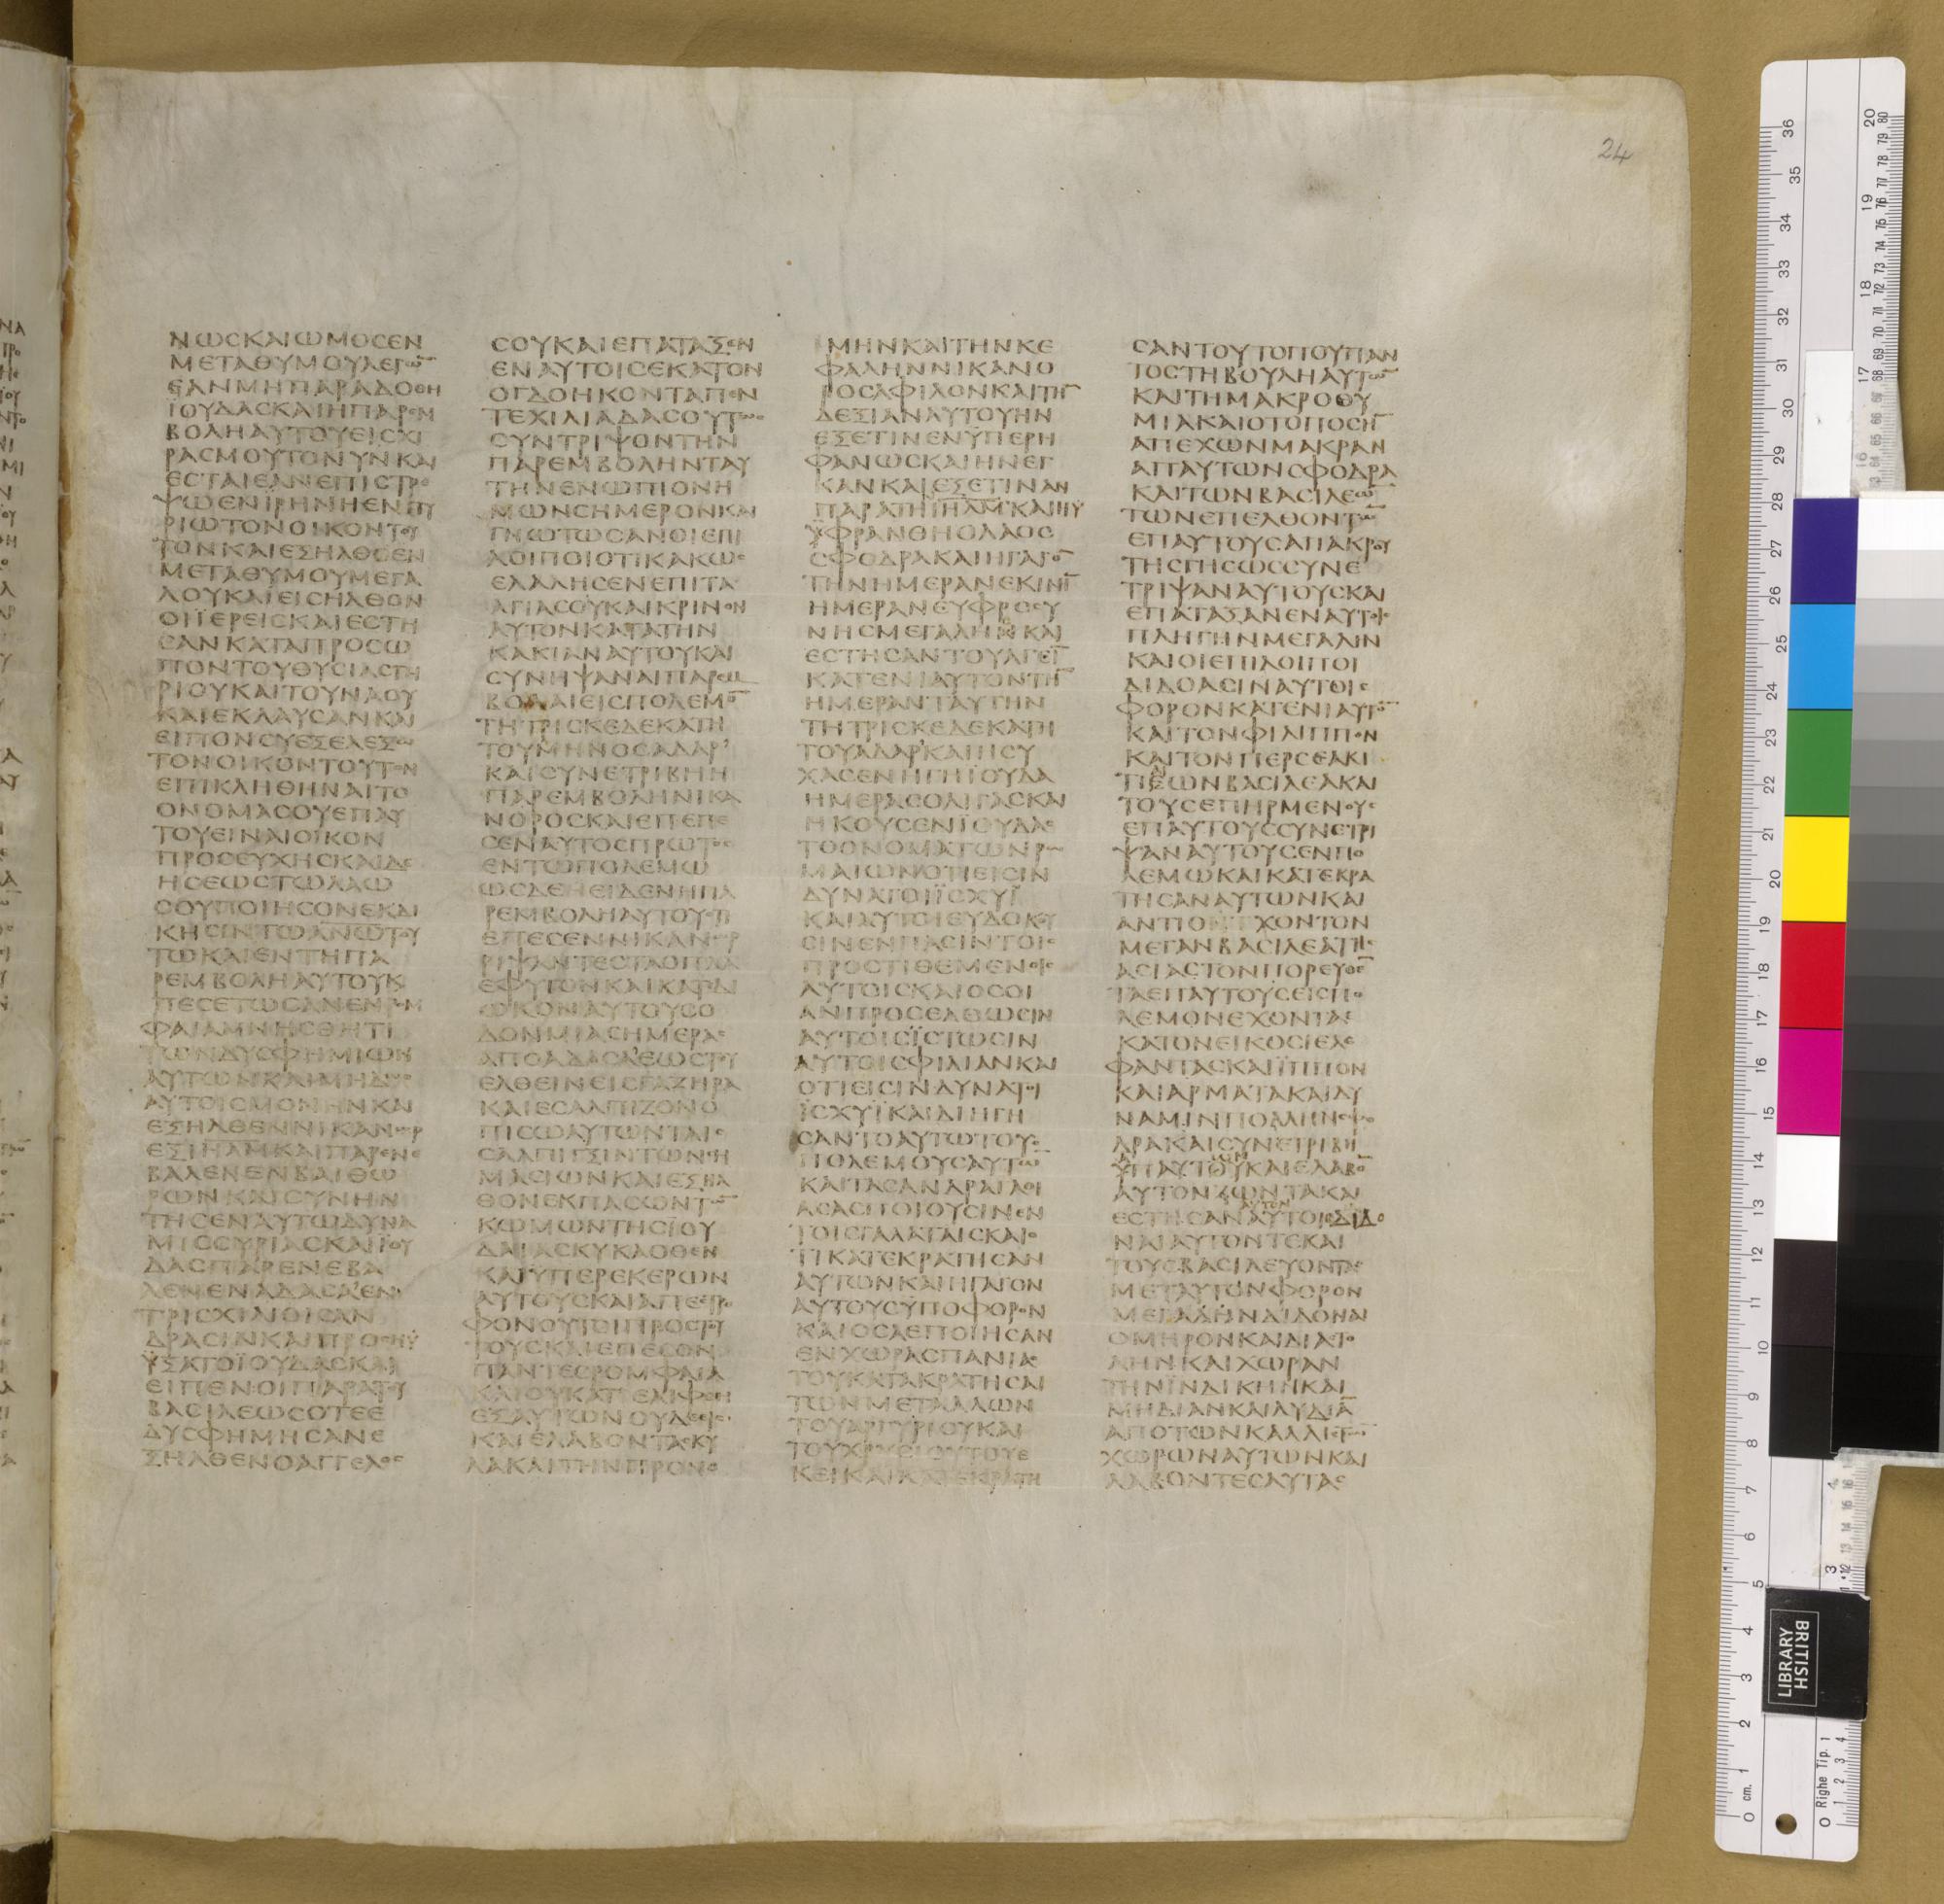 24
ΝΩCΚΑΙΩΜΟCΕΝ
ΜΕΤΑΘΥΜΟΥΛΕΓΩ̅
ΕΑΝΜΗΠΑΡΑΔΟΘΗ
ΪΟΥΔΑCΚΑΙΗΠΑΡΕΜ
ΒΟΛΗΑΥΤΟΥΕΙCΧΙ
ΡΑCΜΟΥΤΟΝΥΝΚΑΙ
ΕCΤΑΙΕΑΝΕΠΙCΤΡΕ
ΨΩΕΝΪΡΗΝΗΕΝΠΥ
ΡΙΩΤΟΝΟΙΚΟΝΤΟΥ
ΤΟΝΚΑΙΕΞΗΛΘΕΝ
ΜΕΤΑΘΥΜΟΥΜΕΓΑ
ΛΟΥΚΑΙΕΙCΗΛΘΟΝ
ΟΙΪΕΡΕΙCΚΑΙΕCΤΗ
CΑΝΚΑΤΑΠΡΟCΩ
ΠΟΝΤΟΥΘΥCΙΑCΤΗ
ΡΙΟΥΚΑΙΤΟΥΝΑΟΥ
ΚΑΙΕΚΛΑΥCΑΝΚΑΙ
ΕΙΠΟΝCΥΕΞΕΛΕΞΩ
ΤΟΝΟΙΚΟΝΤΟΥΤΟΝ
ΕΠΙΚΛΗΘΗΝΑΙΤΟ
ΟΝΟΜΑCΟΥΕΠΑΥ
ΤΟΥΕΙΝΑΙΟΙΚΟΝ
ΠΡΟCΕΥΧΗCΚΑΙΔΕ
ΗCΕΩCΤΩΛΑΩ
CΟΥΠΟΙΗCΟΝΕΚΔΙ
ΚΗCΙΝΤΩΑΝΩΤΟΥ
ΤΩΚΑΙΕΝΤΗΠΑ
ΡΕΜΒΟΛΗΑΥΤΟΥΚ
ΠΕCΕΤΩCΑΝΕΝΡΟΜ
ΦΑΙΑΜΝΗCΘΗΤΙ
ΤΩΝΔΥCΦΗΜΙΩΝ
ΑΥΤΩΝΚΑΙΜΗΔΩC
ΑΥΤΟΙCΜΟΝΗΝΚΑΙ
ΕΞΗΛΘΕΝΝΙΚΑΝΩΡ
ΕΞΙΗΛΜΚΑΙΠΑΡΕΝΕ
ΒΑΛΕΝΕΝΒΑΙΘΩ
ΡΩΝΚΑΙCΥΝΗΝ
ΤΗCΕΝΑΥΤΩΔΥΝΑ
ΜΙCCΥΡΙΑCΚΑΙΪΟΥ
ΔΑCΠΑΡΕΝΕΒΑ
ΛΕΝΕΝΑΔΑCΑΕΝ
ΤΡΙCΧΙΛΙΟΙCΑΝ
ΔΡΑCΙΝΚΑΙΠΡΟCΗΥ
ΥΞΑΤΟΪΟΥΔΑCΚΑΙ
ΕΙΠΕΝΟΙΠΑΡΑΤΟΥ
ΒΑCΙΛΕΩCΟΤΕΕ
ΔΥCΦΗΜΗCΑΝΕ
ΞΗΛΘΕΝΟΑΓΓΕΛΟC
CΟΥΚΑΙΕΠΑΤΑΞΕΝ
ΕΝΑΥΤΟΙCΕΚΑΤΟΝ
ΟΓΔΟΗΚΟΝΤΑΠΕΝ
ΤΕΧΙΛΙΑΔΑCΟΥΤΩC
CΥΝΤΡΙΨΟΝΤΗΝ
ΠΑΡΕΜΒΟΛΗΝΤΑΥ
ΤΗΝΕΝΩΠΙΟΝΗ
ΜΩΝCΗΜΕΡΟΝΚΑΙ
ΓΝΩΤΩCΑΝΟΙΕΠΙ
ΛΟΙΠΟΙΟΤΙΚΑΚΩC
ΕΛΑΛΗCΕΝΕΠΙΤΑ
ΑΓΙΑCΟΥΚΑΙΚΡΙΝΟΝ
ΑΥΤΟΝΚΑΤΑΤΗΝ
ΚΑΚΙΑΝΑΥΤΟΥΚΑΙ
CΥΝΗΨΑΝΑΙΠΑΡΕΜ
ΒΟΛΑΙΕΙCΠΟΛΕΜΟ̅
ΤΗΤΡΙCΚΕΔΕΚΑΤΗ
ΤΟΥΜΗΝΟCΑΔΑΡ
ΚΑΙCΥΝΕΤΡΙΒΗΗ
ΠΑΡΕΜΒΟΛΗΝΙΚΑ
ΝΟΡΟCΚΑΙΕΠΕΠΕ
CΕΝΑΥΤΟCΠΡΩΤΟC
ΕΝΤΩΠΟΛΕΜΩ
ΩCΔΕΗΕΙΔΕΝΗΠΑ
ΡΕΜΒΟΛΗΑΥΤΟΥΟΤΙ
ΕΠΕCΕΝΝΙΚΑΝΩΡ
ΡΙΨΑΝΤΕCΤΑΟΠΛΑ
ΕΦΥΓΟΝΚΑΙΚΑΤΕΔΙ
ΩΚΟΝΑΥΤΟΥCΟ
ΔΟΝΜΙΑCΗΜΕΡΑC
ΑΠΟΑΔΑCΑΕΩCΤΟΥ
ΕΛΘΕΙΝΕΙCΓΑΖΗΡΑ
ΚΑΙΕCΑΛΠΙΖΟΝΟ
ΠΙCΩΑΥΤΩΝΤΑΙC
CΑΛΠΙΓΞΙΝΤΩΝCΗ
ΜΑCΙΩΝΚΑΙΕΞΗΛ
ΘΟΝΕΚΠΑCΩΝΤΩ̅
ΚΩΜΩΝΤΗCΪΟΥ
ΔΑΙΑCΚΥΚΛΟΘΕΝ
ΚΑΙΥΠΕΡΕΚΕΡΩΝ
ΑΥΤΟΥCΚΑΙΑΠΕCΤΡΕ
ΦΟΝΟΥΤΟΙΠΡΟCΤΟΥ
ΤΟΥCΚΑΙΕΠΕCΟΝ
ΠΑΝΤΕCΡΟΜΦΑΙΑ
ΚΑΙΟΥΚΑΤΕΛΙΦΘΗ
ΕΞΑΥΤΩΝΟΥΔΕΕΙC
ΚΑΙΕΛΑΒΟΝΤΑCΚΥ
ΛΑΚΑΙΤΗΝΠΡΟΝΟ
ΜΗΝΚΑΙΤΗΝΚΕ
ΦΑΛΗΝΝΙΚΑΝΟ
ΡΟCΑΦΙΛΟΝΚΑΙΤΗ̅
ΔΕΞΙΑΝΑΥΤΟΥΗΝ
ΕΞΕΤΙΝΕΝΫΠΕΡΗ
ΦΑΝΩCΚΑΙΗΝΕΓ
ΚΑΝΚΑΙΕΞΕΤΙΝΑΝ
ΠΑΡΑΤΗΙΗΛΜΚΑΙΗΥ
ΫΦΡΑΝΘΗΟΛΑΟC
CΦΟΔΡΑΚΑΙΗΓΑΓΟ̅
ΤΗΝΗΜΕΡΑΝΕΚΙΝΗ̅
ΗΜΕΡΑΝΕΥΦΡΟCΥ
ΝΗCΜΕΓΑΛΗΝΚΑΙ
ΕCΤΗCΑΝΤΟΥΑΓΕΙ̅
ΚΑΤΕΝΙΑΥΤΟΝΤΗ̅
ΗΜΕΡΑΝΤΑΥΤΗΝ
ΤΗΤΡΙCΚΕΔΕΚΑΤΗ
ΤΟΥΑΔΑΡΚΑΙΗCΥ
ΧΑCΕΝΗΓΗΪΟΥΔΑ
ΗΜΕΡΑCΟΛΙΓΑCΚΑΙ
ΗΚΟΥCΕΝΪΟΥΔΑC
ΤΟΟΝΟΜΑΤΩΝΡΩ
ΜΑΙΩΝΟΤΙΕΙCΙΝ
ΔΥΝΑΤΟΙΪCΧΥΪ
ΚΑΙΑΥΤΟΙΕΥΔΟΚΟΥ
CΙΝΕΝΠΑCΙΝΤΟΙC
ΠΡΟCΤΙΘΕΜΕΝΟΙC
ΑΥΤΟΙCΚΑΙΟCΟΙ
ΑΝΠΡΟCΕΛΘΩCΙΝ
ΑΥΤΟΙCΪCΤΩCΙΝ
ΑΥΤΟΙCΦΙΛΙΑΝΚΑΙ
ΟΤΙΕΙCΙΝΔΥΝΑΤΟΙ
ΪCΧΥΪΚΑΙΔΙΗΓΗ
CΑΝΤΟΑΥΤΩΤΟΥC
ΠΟΛΕΜΟΥCΑΥΤΩ̅
ΚΑΙΤΑCΑΝΔΡΑΓΑΘΙ
ΑCΑCΠΟΙΟΥCΙΝΕΝ
ΤΟΙCΓΑΛΑΤΑΙCΚΑΙΟ
ΤΙΚΑΤΕΚΡΑΤΗCΑΝ
ΑΥΤΩΝΚΑΙΗΓΑΓΟΝ
ΑΥΤΟΥCΫΠΟΦΟΡΟΝ
ΚΑΙΟCΑΕΠΟΙΗCΑΝ
ΕΝΧΩΡΑCΠΑΝΙΑC
ΤΟΥΚΑΤΑΚΡΑΤΗCΑΙ
ΤΩΝΜΕΤΑΛΛΩΝ
ΤΟΥΑΡΓΥΡΙΟΥΚΑΙ
ΤΟΥΧΡΥCΙΟΥΤΟΥΕ
ΚΕΙΚΑΙΚΑΤΕΚΡΑΤΗ
CΑΝΤΟΥΤΟΠΟΥΠΑΝ
ΤΟCΤΗΒΟΥΛΗΑΥΤΩ̅
ΚΑΙΤΗΜΑΚΡΟΘΥ
ΜΙΑΚΑΙΟΤΟΠΟCΗ̅
ΑΠΕΧΩΝΜΑΚΡΑΝ
ΑΠΑΥΤΩΝCΦΟΔΡΑ
ΚΑΙΤΩΝΒΑCΙΛΕΩ̅
ΤΩΝΕΠΕΛΘΟΝΤΩ̅
ΕΠΑΥΤΟΥCΑΠΑΚΡΟΥ
ΤΗCΓΗCΩCCΥΝΕ
ΤΡΙΨΑΝΑΥΤΟΥCΚΑΙ
ΕΠΑΤΑΞΑΝΕΝΑΥΤΟΙC
ΠΛΗΓΗΝΜΕΓΑΛΗΝ
ΚΑΙΟΙΕΠΙΛΟΙΠΟΙ
ΔΙΔΟΑCΙΝΑΥΤΟΙC
ΦΟΡΟΝΚΑΤΕΝΙΑΥΤΟ̅
ΚΑΙΤΟΝΦΙΛΙΠΠΟΝ
ΚΑΙΤΟΝΠΕΡCΕΑΚΙ
ΤΙΕΩΝΒΑCΙΛΕΑΚΑΙ
ΤΟΥCΕΠΗΡΜΕΝΟΥC
ΕΠΑΥΤΟΥCCΥΝΕΤΡΙ
ΨΑΝΑΥΤΟΥCΕΝΠΟ
ΛΕΜΩΚΑΙΚΑΤΕΚΡΑ
ΤΗCΑΝΑΥΤΩΝΚΑΙ
ΑΝΤΙΟΧΟΝΤΟΝ
ΜΕΓΑΝΒΑCΙΛΕΑΤΗC
ΑCΙΑCΤΟΝΠΟΡΕΥΘΕ̅
ΤΑΕΠΑΥΤΟΥCΕΙCΠΟ
ΛΕΜΟΝΕΧΟΝΤΑC
ΚΑΤΟΝΕΙΚΟCΙΕΛΕ
ΦΑΝΤΑCΚΑΙΪΠΠΟΝ
ΚΑΙΑΡΜΑΤΑΚΑΙΔΥ
ΝΑΜΙΝΠΟΛΛΗΝCΦΟ
ΔΡΑΚΑΙCΥΝΕΤΡΙΒΗ
ΫΠΑΥΤΟΥΚΑΙΕΛΑΒΟ̅
ΑΥΤΟΝΖΩΝΤΑΚΑΙ
ΕCΤΗCΑΝΑΥΤΟΙCΔΙΔΟ
ΝΑΙΑΥΤΟΝΤΕΚΑΙ
ΤΟΥCΒΑCΙΛΕΥΟΝΤΑC
ΜΕΤΑΥΤΟΝΦΟΡΟΝ
ΜΕΓΑΛΗΝΔΙΔΟΝΑΙ
ΟΜΗΡΟΝΚΑΙΔΙΑΤΟ
ΛΗΝΚΑΙΧΩΡΑΝ
ΤΗΝΪΝΔΙΚΗΝΚΑΙ
ΜΗΔΙΑΝΚΑΙΛΥΔΙΑ̅
ΑΠΟΤΩΝΚΑΛΛΙCΤΩ̅
ΧΩΡΩΝΑΥΤΩΝΚΑΙ
ΛΑΒΟΝΤΕCΑΥΤΑC
BRITISH
LIBRARY